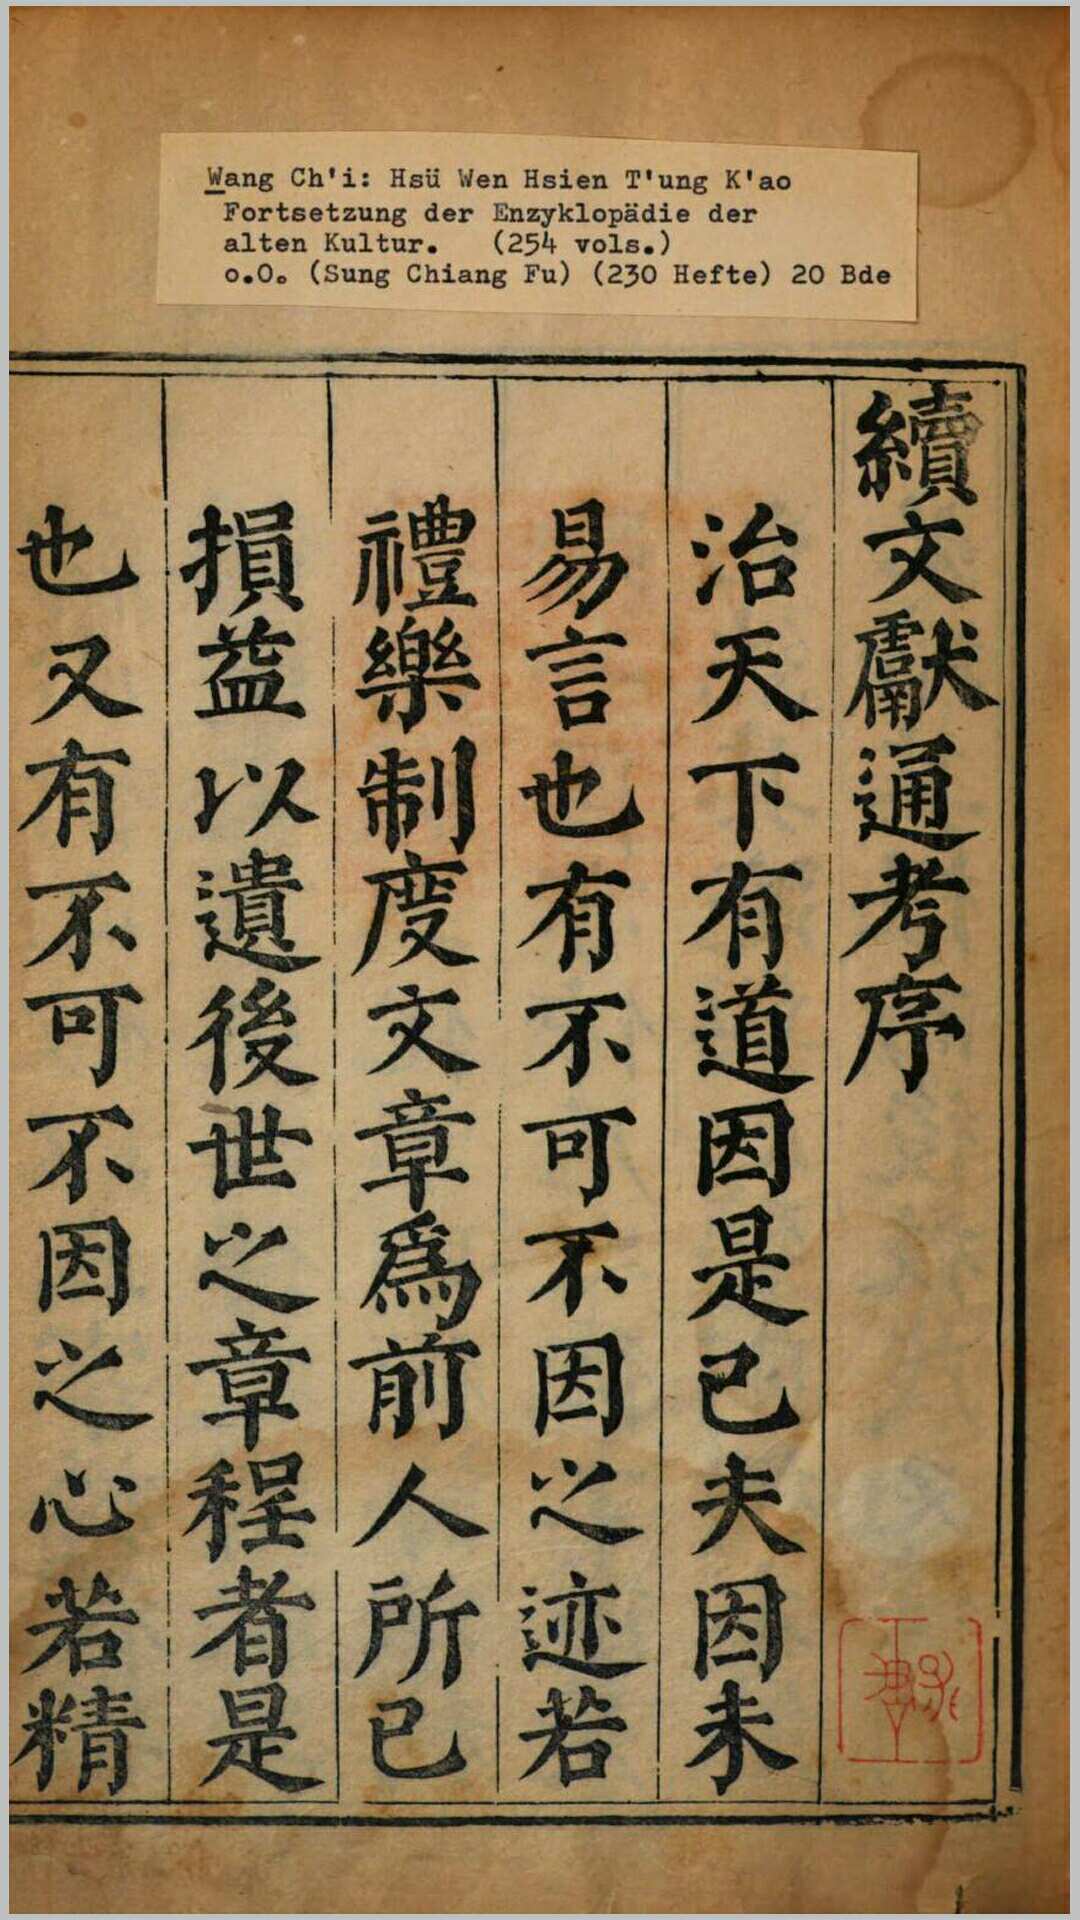 Wang Ch'i: Hsü Wen Hsien T'ung K'ao
Fortsetzung der Enzyklopädie der
alten Kultur. (254 vols.)
o.O. (Sung Chiang Fu) (230 Hefte) 20 Bde
續文獻通考序
治天下有道因是已夫因未
易言也有不可不因之迹若
禮樂制度文章爲前人所已
損益以遺後世之章程者是
也又有不可不因之心若精